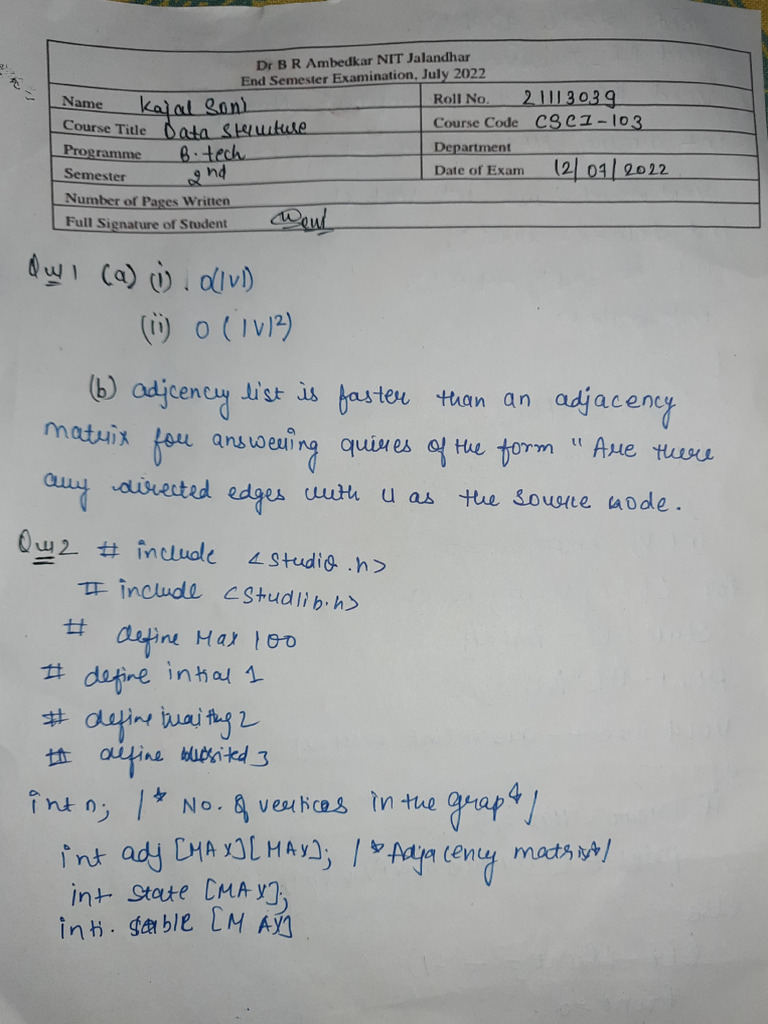 Dr B R Ambedkar NIT Jalandhar
End Semester Examination, July 2022
Name Kajal Soni
Roll No. 21113039
Course Title Data Structure
Course Code CSCI-103
Programme B.tech
Department
Semester 2nd
Date of Exam 12/07/2022
Number of Pages Written
Full Signature of Student
Qu 1 (a) (i) . O(|V|)
(ii) O ( |V|²)
(b) adjcency list is faster than an adjacency
matrix for answering quires of the form " Are there
any directed edges with u as the source node.
Qu 2 # include <Studio.h>
# include <Studlib.h>
# define Max 100
# define intial 1
# define waiting 2
# define visited 3
int n; /* No. of vertices in the grap */
int adj [MAX][MAX]; /* Adjacency matrix */
int state [MAX];
int [MAX]